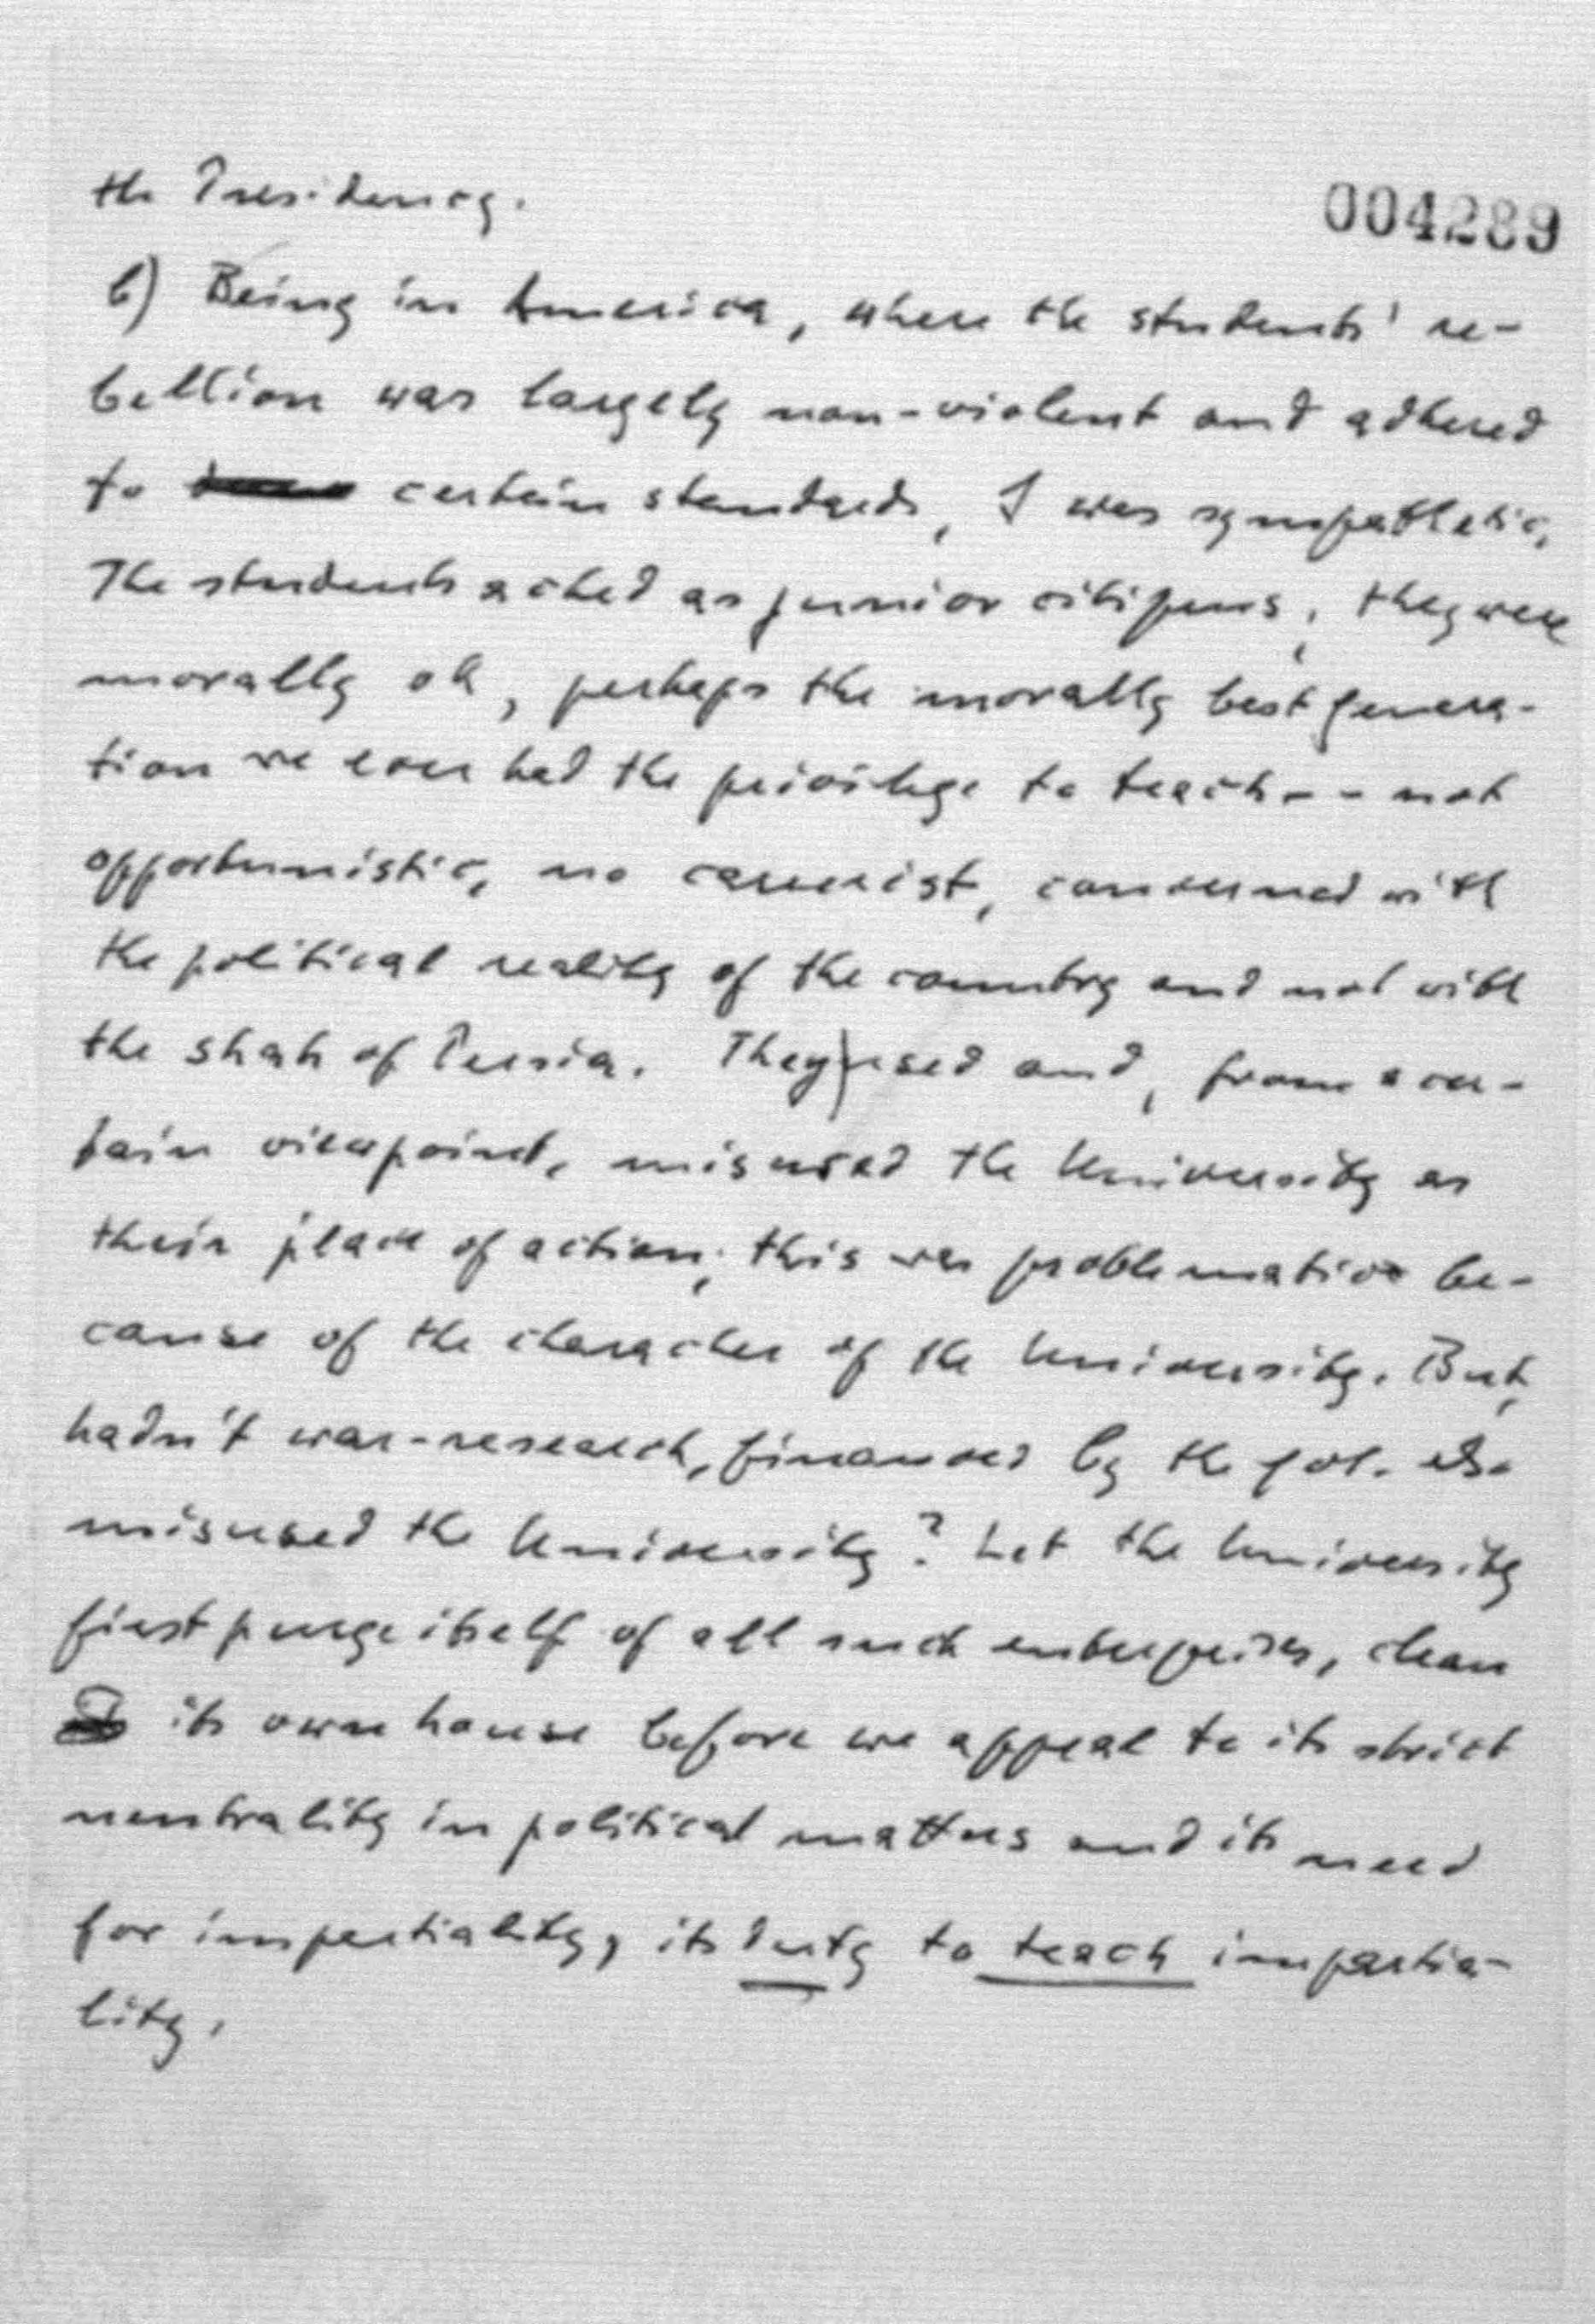 the Presidency.
004289
b) Being in America, where the students' re-
bellion was largely non-violent and adhered
to certain standards, I was sympathetic.
The students acted as junior citizens; they were
morally ok, perhaps the morally best genera-
tion we ever had the privilege to teach -- not
opportunistic, no careerist, concerned with
the political reality of the country and not with
the shah of Persia. They used and, from a cer-
tain viewpoint, misused the University as
their place of action; this was problematic be-
cause of the character of the University. But,
hadn't war-research, financed by the gov. also
misused the University? Let the University
first purge itself of all such enterprises, clean
its own house before we appeal to its strict
neutrality in political matters and its need
for impartiality, its duty to teach impartia-
lity.